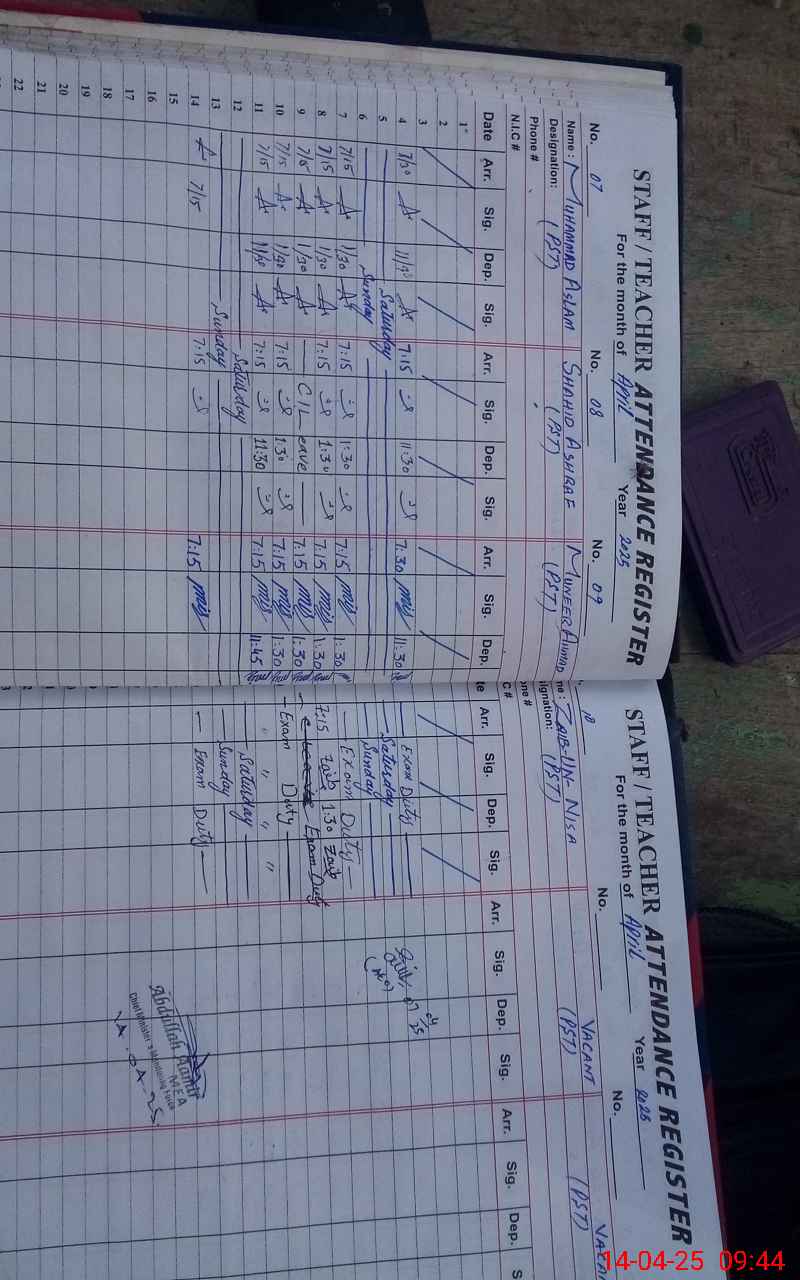 STAFF / TEACHER ATTENDANCE REGISTER
For the month of April Year 2025
No. 07 No. 08 No. 09
Name : MUHAMMAD ASLAM SHAHID ASHRAF MUNEER AHMAD
Designation: (PST) (PST) (PST)
Phone #
N.I.C #
Date Arr. Sig. Dep. Sig. Arr. Sig. Dep. Sig. Arr. Sig. Dep.
1
2
3
4 7/30 11/30 7:15 11:30 7:30 11:30
5 Saturday
6 Sunday
7 7/15 1/30 7:15 1:30 7:15 1:30
8 7/15 1/30 7:15 1:30 7:15 1:30
9 7/15 1/30 C/Leave 7:15 1:30
10 7/15 1/30 7:15 1:30 7:15 1:30
11 7/15 11/30 7:15 11:30 7:15 11:45
12 Saturday
13 Sunday
14 7/15 7:15 7:15
15
16
17
18
19
20
21
22
STAFF / TEACHER ATTENDANCE REGISTER
For the month of April Year 2025
10 No. No.
ne : ZAIB-UN-NISA VACANT
signation: (PST) (PST) (PST)
one #
C #
te Arr. Sig. Dep. Sig. Arr. Sig. Dep. Sig. Arr. Sig. Dep. S
Exam Duty
Saturday
Sunday
Exam Duty
7:15 Zaib 1:30 Zaib
Exam Duty
Exam Duty
" " " "
Saturday
Sunday
Exam Duty
Abdullah Aamir
MEA
Chief Minister's Monitoring Force
14-04-25 09:44